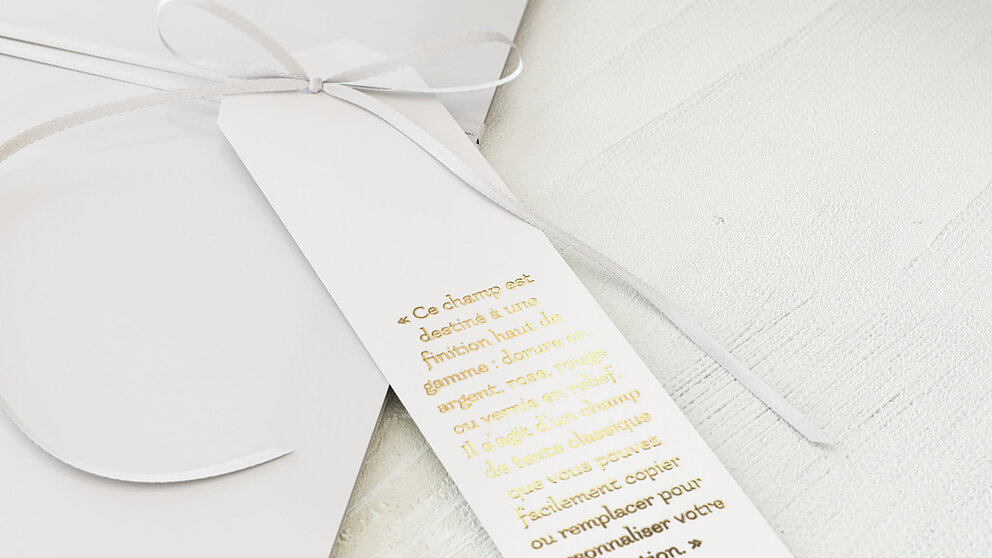 « Ce champ est
destiné à une
finition haut de
gamme : dorure or,
argent, rose, rouge
ou vernis en relief.
Il s'agit d'un champ
de texte classique
que vous pouvez
facilement copier
ou remplacer pour
sonnaliser votre
tion. »